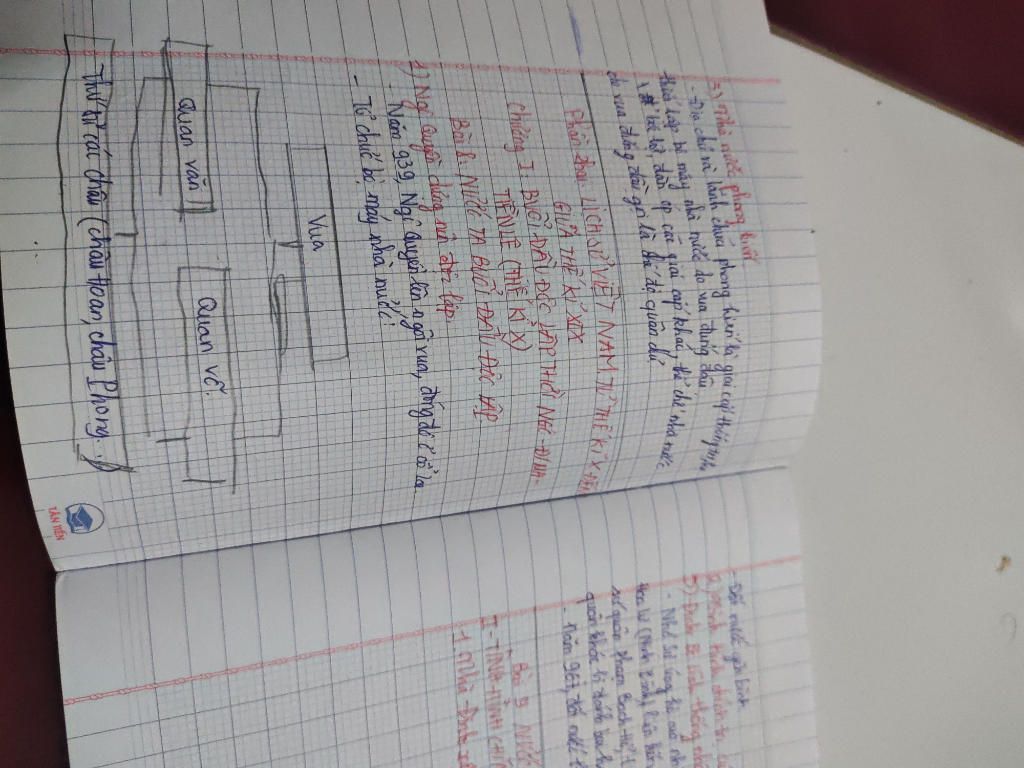 3) Nhà nước phong kiến
- Địa chủ và lãnh chúa phong kiến là giai cấp thống trị
thiết lập bộ máy nhà nước do vua đứng đầu
để bóc lột, đàn áp các giai cấp khác, thể chế nhà nước
do vua đứng đầu gọi là chế độ quân chủ
Phần hai LỊCH SỬ VIỆT NAM TỪ THẾ KỈ X ĐẾN
GIỮA THẾ KỈ XIX
Chương I BUỔI ĐẦU ĐỘC LẬP THỜI NGÔ-ĐINH-
TIỀN LÊ (THẾ KỈ X)
Bài 8. NƯỚC TA BUỔI ĐẦU ĐỘC LẬP
1) Ngô Quyền dựng nền độc lập.
- Năm 939, Ngô Quyền lên ngôi vua, đóng đô ở Cổ Loa
- Tổ chức bộ máy nhà nước:
Vua
Quan văn
Quan võ.
Thứ sử các châu (châu Hoan, châu Phong
TÂN TIẾN
- Đất nước yên bình
2) Tình hình chính trị
3) Đinh Bộ Lĩnh thống
- Nhờ sự ủng hộ của nh
sứ quân Phạm Bạch Hổ,
quân khác bị đánh bại
- Năm 967, đất nước
Bài 9 NƯỚC
I- TÌNH HÌNH CHÍN
1. Nhà Đinh x